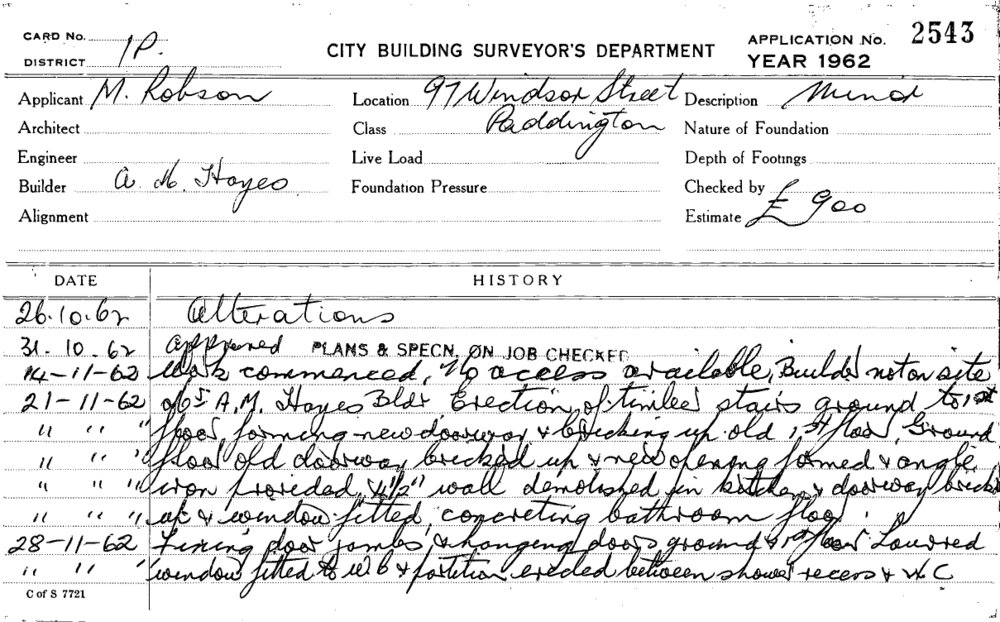 CARD No.
DISTRICT 1P.
CITY BUILDING SURVEYOR'S DEPARTMENT
APPLICATION No. 2543
YEAR 1962
Applicant M. Robson
Location 97 Windsor Street
Description Minor
Architect
Class Paddington
Nature of Foundation
Engineer
Live Load
Depth of Footings
Builder A. M. Hayes
Foundation Pressure
Checked by
Alignment
Estimate £ 900
DATE HISTORY
26.10.62 Alterations
31.10.62 Approved PLANS & SPECN. ON JOB CHECKED
14-11-62 Work commenced, No access available, Builder not on site
21-11-62 A.M. Hayes Bldr Erection of timber stairs ground to 1st
" " " floor, forming new doorway & bricking up old, 1st floor, Ground
" " " floor old doorway bricked up & new opening formed & angle
" " " iron provided, 4½" wall demolished in kitchen & doorway brick
" " " up & window fitted, concreting bathroom floor.
28-11-62 Fixing door jambs, & hanging doors ground & 1st floor Louvred
" " " window fitted to WC & partition erected between shower recess & WC
C of S 7721